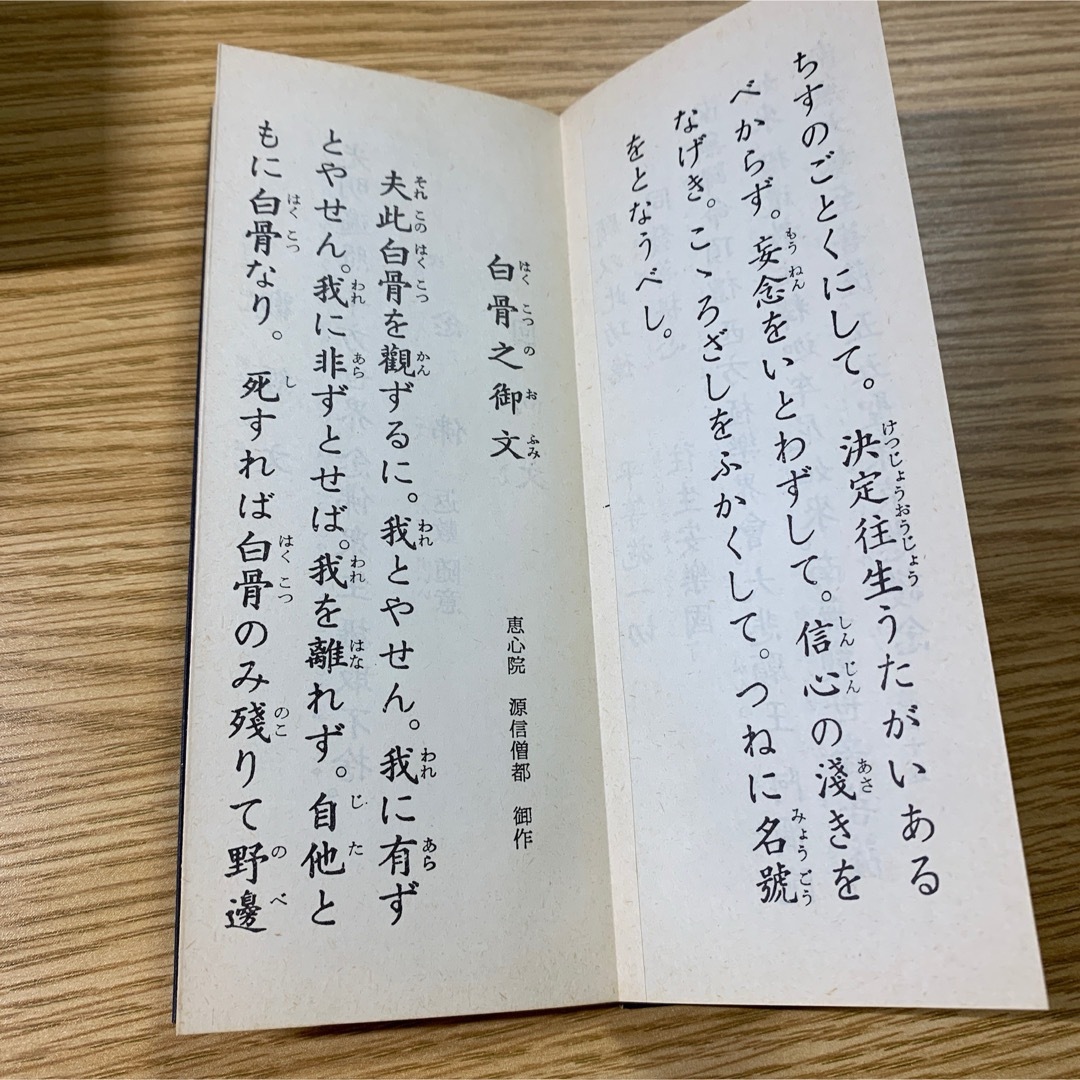 ちすのごとくにして。決定往生うたがいある
べからず。妄念をいとわずして。信心の淺きを
なげき。こゝろざしをふかくして。つねに名號
をとなうべし。
白骨之御文
恵心院 源信僧都 御作
夫此白骨を觀ずるに。我とやせん。我に有ず
とやせん。我に非ずとせば。我を離れず。自他と
もに白骨なり。死すれば白骨のみ殘りて野邊